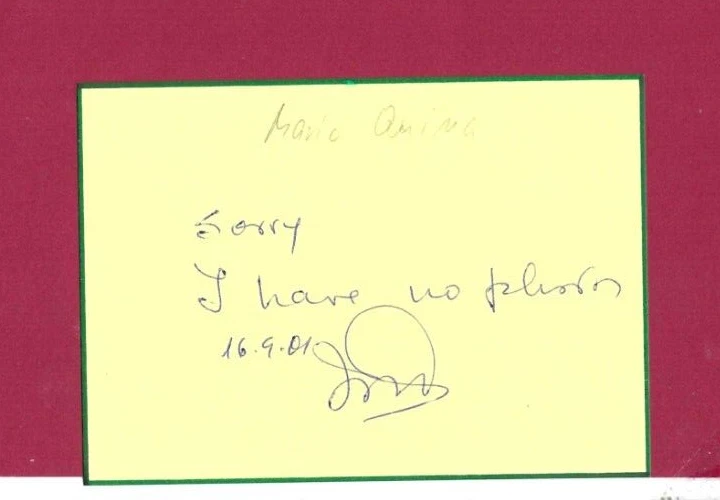 Mario
Sorry
I have no photos
16.9.01